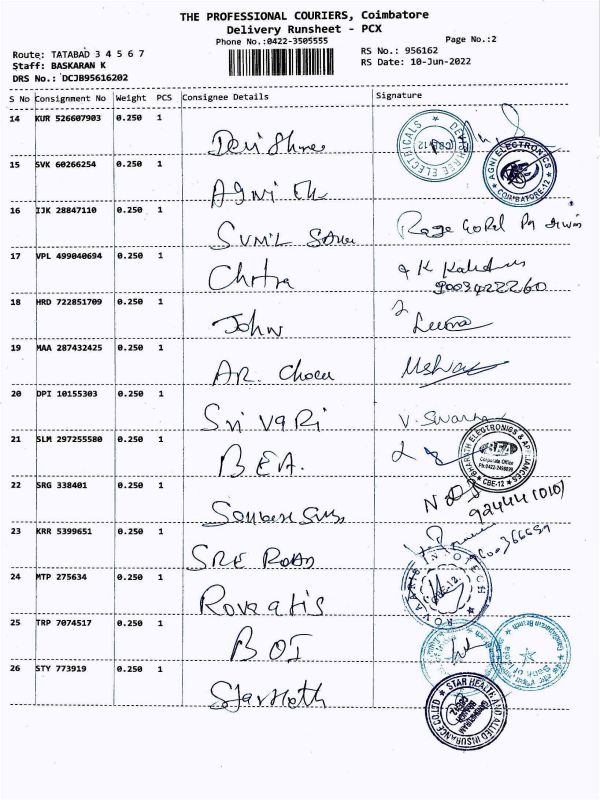 THE PROFESSIONAL COURIERS, Coimbatore
Delivery Runsheet - PCX
Phone No.:0422-3505555
Page No.:2
Route: TATABAD 3 4 5 6 7
Staff: BASKARAN K
DRS No.: DCJB95616202
RS No.: 956162
RS Date: 10-Jun-2022
S No Consignment No Weight PCS Consignee Details Signature
14 KUR 526607903 0.250 1
Devi Shree
DEVI SHREE ELECTRICALS CBE-12
15 SVK 60266254 0.250 1
Agni
AGNI ELECTRONICS COIMBATORE-12
16 IJK 28847110 0.250 1
SUNIL
17 VPL 499040694 0.250 1
Chitra
18 HRD 722851709 0.250 1
John
19 MAA 287432425 0.250 1
AR.
20 DPI 10155303 0.250 1
Sri VARI V. Swarna
21 SLM 297255580 0.250 1
BEA.
BHARATH ELECTRONICS & APPLIANCES BEA Corporate Office CBE-12
22 SRG 338401 0.250 1
23 KRR 5399651 0.250 1
SRE
24 MTP 275634 0.250 1
Rovaatis
ROVAATIS INFOTECH CBE-12
25 TRP 7074517 0.250 1
BOI
26 STY 773919 0.250 1
Star Heth
STAR HEALTH AND ALLIED INSURANCE CO LTD